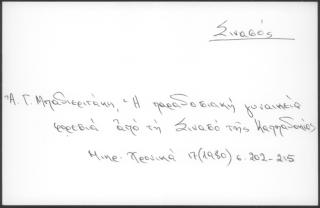 Σινασός
Ἀ. Γ. Μπαδιεριτάκη, Ἡ παραδοσιακή γυναικεία
φορεσιά ἀπό τή Σινασό τῆς Καππαδοκίας
Μικρ. Χρονικά 17 (1980) σ. 202-215